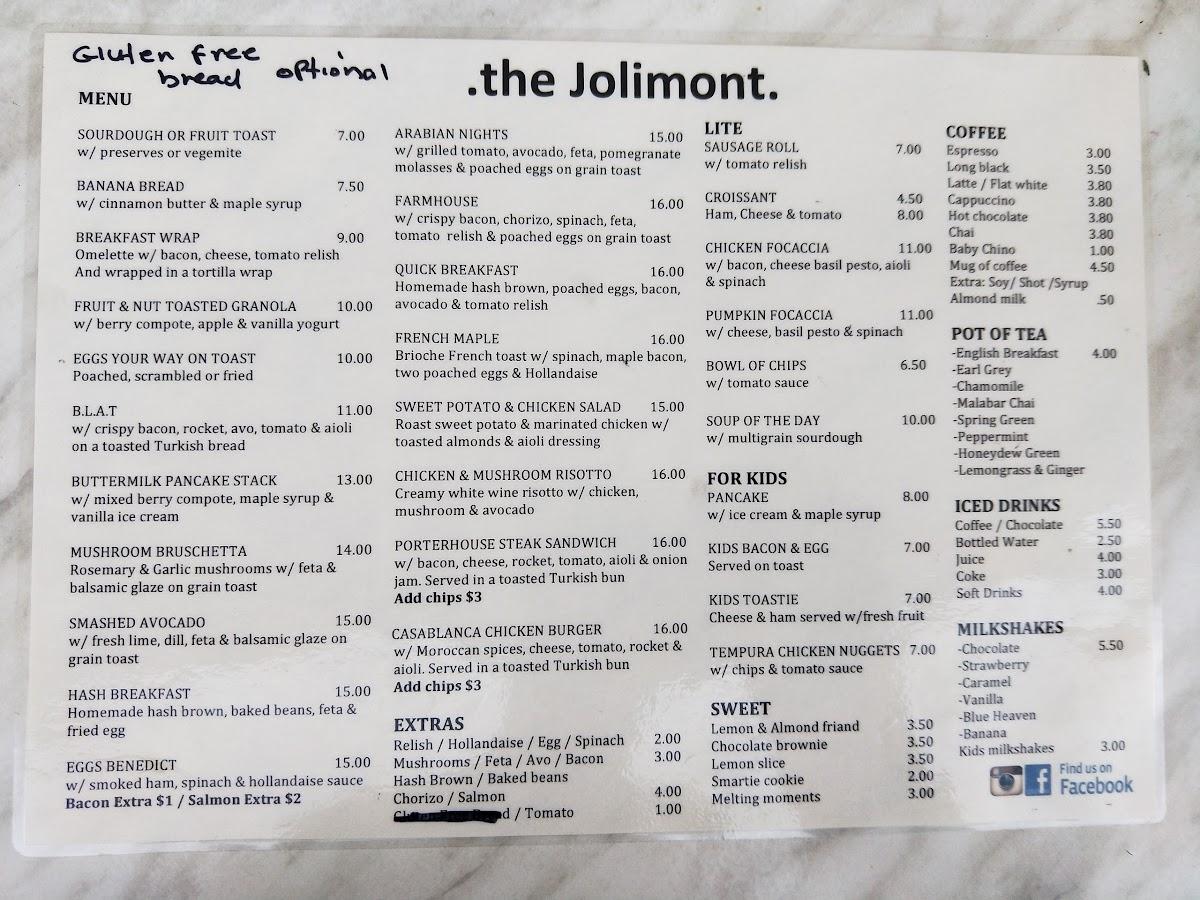 Gluten free
bread optional
.the Jolimont.
MENU
SOURDOUGH OR FRUIT TOAST 7.00
w/ preserves or vegemite
BANANA BREAD 7.50
w/ cinnamon butter & maple syrup
BREAKFAST WRAP 9.00
Omelette w/ bacon, cheese, tomato relish
And wrapped in a tortilla wrap
FRUIT & NUT TOASTED GRANOLA 10.00
w/ berry compote, apple & vanilla yogurt
EGGS YOUR WAY ON TOAST 10.00
Poached, scrambled or fried
B.L.A.T 11.00
w/ crispy bacon, rocket, avo, tomato & aioli
on a toasted Turkish bread
BUTTERMILK PANCAKE STACK 13.00
w/ mixed berry compote, maple syrup &
vanilla ice cream
MUSHROOM BRUSCHETTA 14.00
Rosemary & Garlic mushrooms w/ feta &
balsamic glaze on grain toast
SMASHED AVOCADO 15.00
w/ fresh lime, dill, feta & balsamic glaze on
grain toast
HASH BREAKFAST 15.00
Homemade hash brown, baked beans, feta &
fried egg
EGGS BENEDICT 15.00
w/ smoked ham, spinach & hollandaise sauce
Bacon Extra $1 / Salmon Extra $2
ARABIAN NIGHTS 15.00
w/ grilled tomato, avocado, feta, pomegranate
molasses & poached eggs on grain toast
FARMHOUSE 16.00
w/ crispy bacon, chorizo, spinach, feta,
tomato relish & poached eggs on grain toast
QUICK BREAKFAST 16.00
Homemade hash brown, poached eggs, bacon,
avocado & tomato relish
FRENCH MAPLE 16.00
Brioche French toast w/ spinach, maple bacon,
two poached eggs & Hollandaise
SWEET POTATO & CHICKEN SALAD 15.00
Roast sweet potato & marinated chicken w/
toasted almonds & aioli dressing
CHICKEN & MUSHROOM RISOTTO 16.00
Creamy white wine risotto w/ chicken,
mushroom & avocado
PORTERHOUSE STEAK SANDWICH 16.00
w/ bacon, cheese, rocket, tomato, aioli & onion
jam. Served in a toasted Turkish bun
Add chips $3
CASABLANCA CHICKEN BURGER 16.00
w/ Moroccan spices, cheese, tomato, rocket &
aioli. Served in a toasted Turkish bun
Add chips $3
EXTRAS
Relish / Hollandaise / Egg / Spinach 2.00
Mushrooms / Feta / Avo / Bacon 3.00
Hash Brown / Baked beans
Chorizo / Salmon 4.00
/ Tomato 1.00
LITE
SAUSAGE ROLL 7.00
w/ tomato relish
CROISSANT 4.50
Ham, Cheese & tomato 8.00
CHICKEN FOCACCIA 11.00
w/ bacon, cheese basil pesto, aioli
& spinach
PUMPKIN FOCACCIA 11.00
w/ cheese, basil pesto & spinach
BOWL OF CHIPS 6.50
w/ tomato sauce
SOUP OF THE DAY 10.00
w/ multigrain sourdough
FOR KIDS
PANCAKE 8.00
w/ ice cream & maple syrup
KIDS BACON & EGG 7.00
Served on toast
KIDS TOASTIE 7.00
Cheese & ham served w/fresh fruit
TEMPURA CHICKEN NUGGETS 7.00
w/ chips & tomato sauce
SWEET
Lemon & Almond friand 3.50
Chocolate brownie 3.50
Lemon slice 3.50
Smartie cookie 2.00
Melting moments 3.00
COFFEE
Espresso 3.00
Long black 3.50
Latte / Flat white 3.80
Cappuccino 3.80
Hot chocolate 3.80
Chai 3.80
Baby Chino 1.00
Mug of coffee 4.50
Extra: Soy/ Shot /Syrup
Almond milk .50
POT OF TEA
-English Breakfast 4.00
-Earl Grey
-Chamomile
-Malabar Chai
-Spring Green
-Peppermint
-Honeydew Green
-Lemongrass & Ginger
ICED DRINKS
Coffee / Chocolate 5.50
Bottled Water 2.50
Juice 4.00
Coke 3.00
Soft Drinks 4.00
MILKSHAKES
-Chocolate 5.50
-Strawberry
-Caramel
-Vanilla
-Blue Heaven
-Banana
Kids milkshakes 3.00
Find us on
Facebook